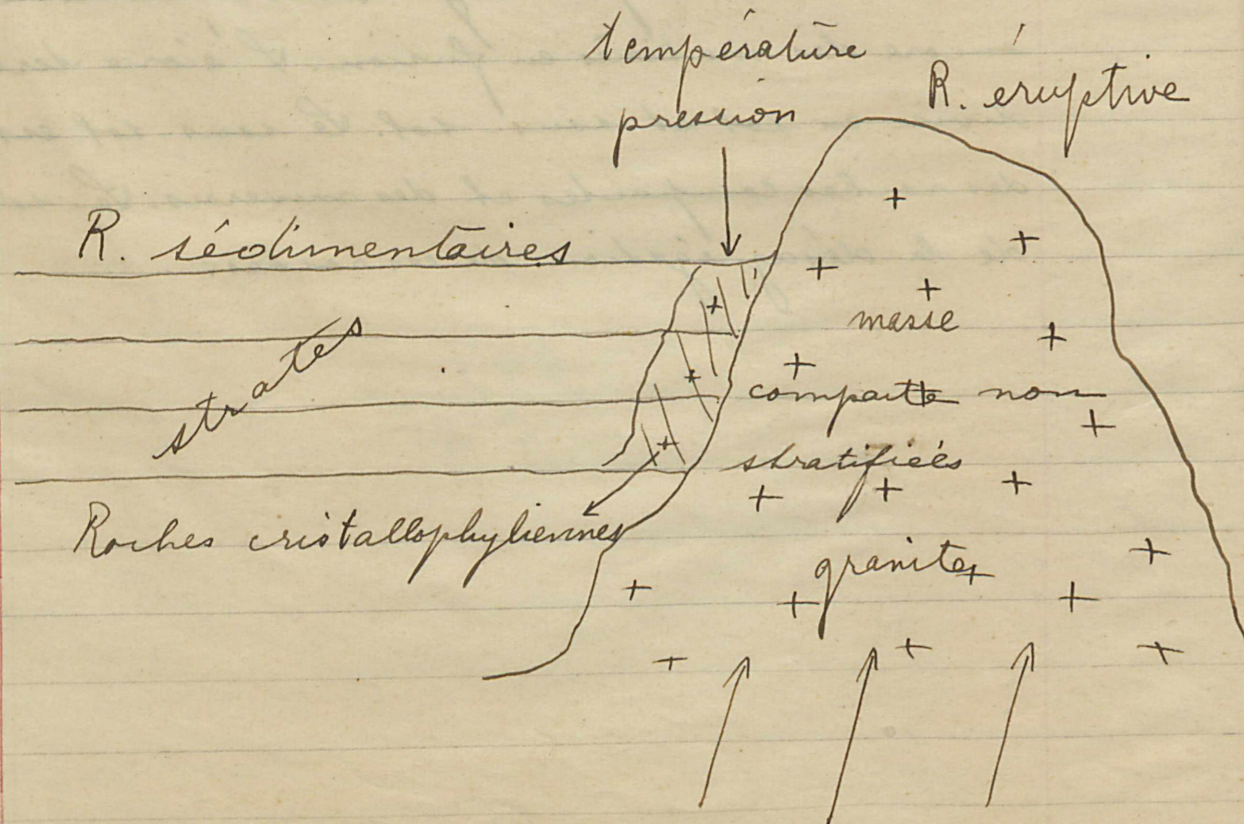 température
pression
R. éruptive
R. sédimentaires
strates
masse
compacte non
stratifiées
granite
Roches cristallophylliennes